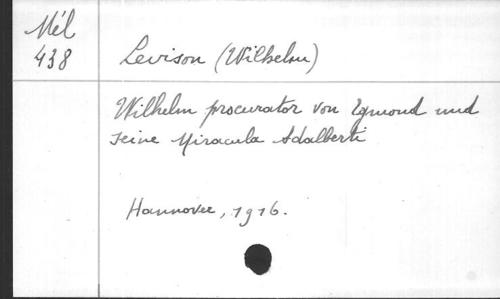 Mél
438
Levison (Wilhelm)
Wilhelm procurator von Egmond und
seine Miracula Adalberti
Hannover, 1916.